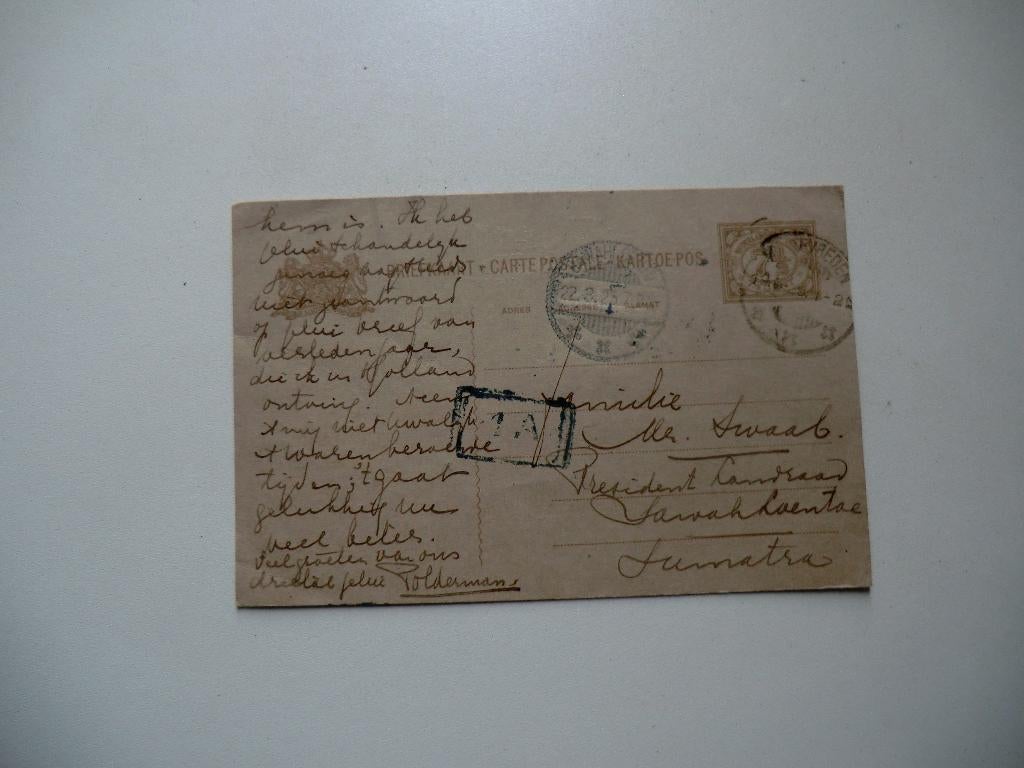 hem is. Ik heb
jelui schandelijk
niet geantwoord
of jelui brief van
verleden jaar,
die ik in Holland
ontving. Neem
't mij niet kwalijk
't waren beroerde
tijden; 't gaat
gelukkig nu
veel beter.
Veel groeten van ons
drietal jelui Polderman.
BRIEFKAART - CARTE POSTALE - KARTOEPOS
ADRES
ALAMAT
22.3.
T.A
Familie
Mr. Swaab.
President Landraad
Sawahloentoe
Sumatra